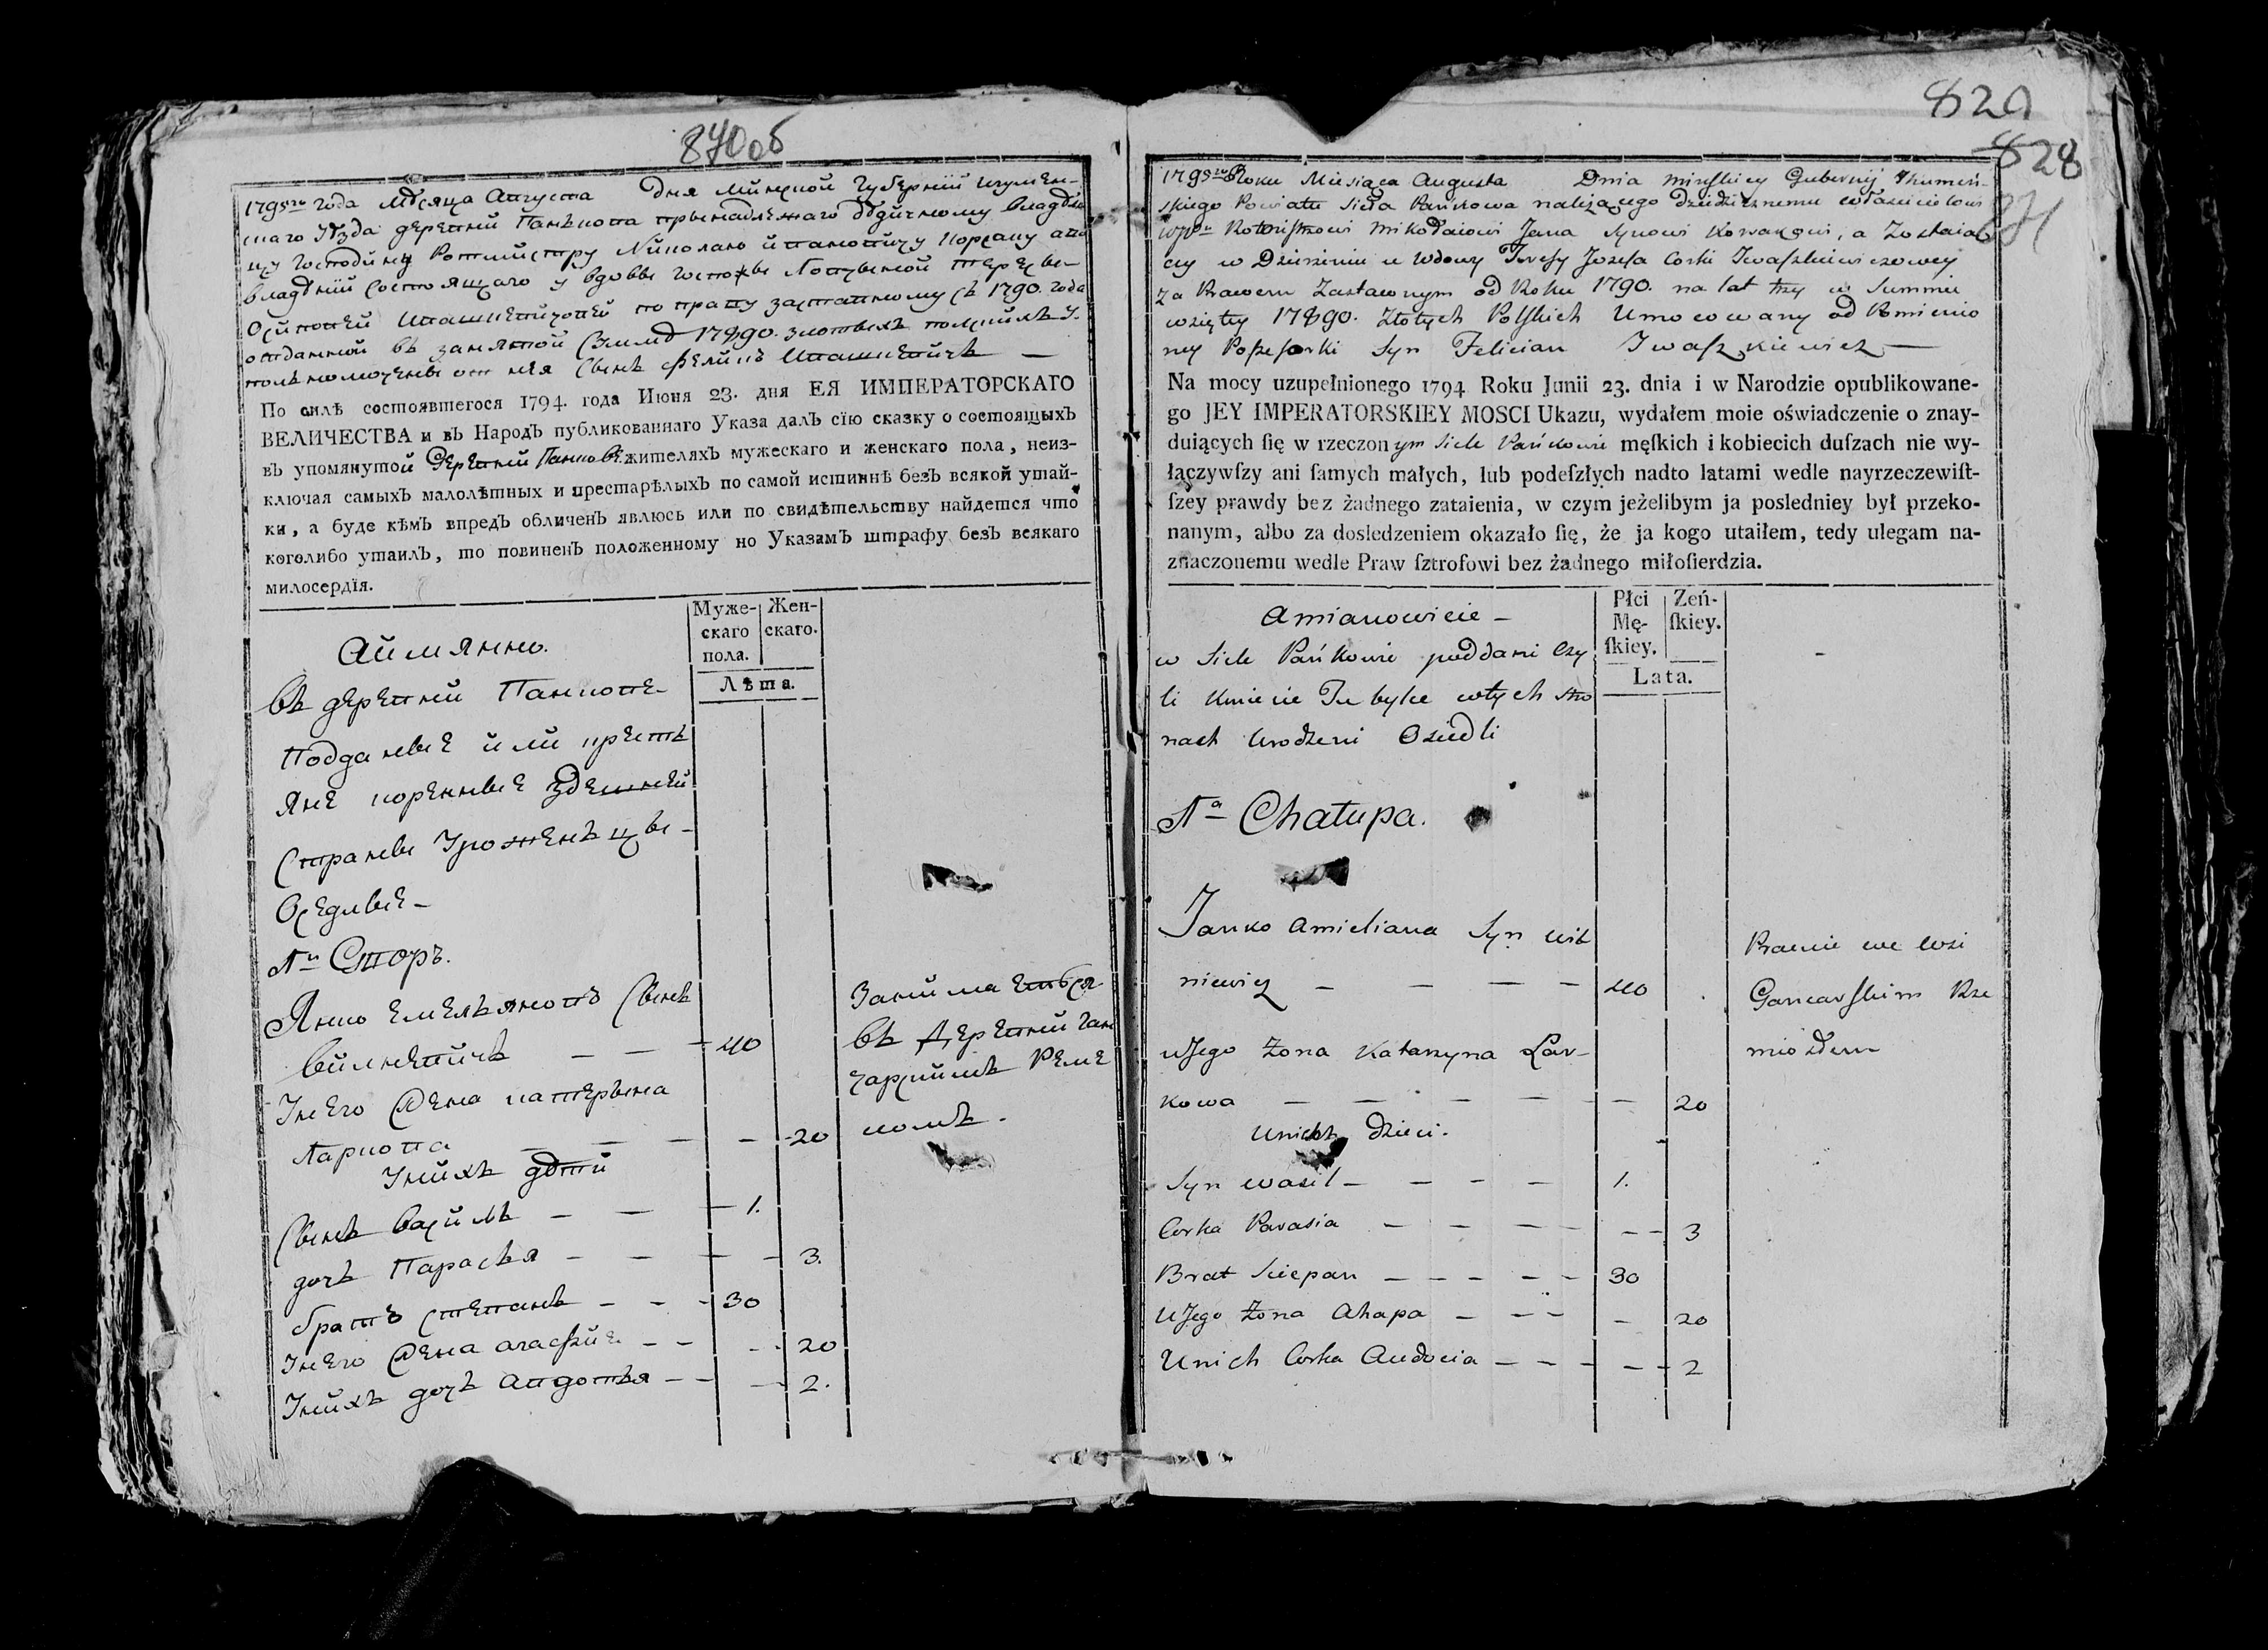 870 об
1795го года Мѣсяца Августа Дня Минской Губернїи Игумен-
скаго Уѣзда деревни Панькова принадлежаго дѣдичному владѣл
цу Господину Ротмистру Николаю Иванович Корсаку а по
владѣнїи состоящаго у вдовы Госпожы Терезы
Осиповой Ивашкевичовой по праву заставному съ 1790. года
отданной въ занятой 17890. злотыхъ польскихъ у
полъномоченны отъ нея Сынъ Фелицъ Ивашкевичъ —
По силѣ состоявшегося 1794. года Июня 23. дня ЕЯ ИМПЕРАТОРСКАГО
ВЕЛИЧЕСТВА и въ Народъ публикованнаго Указа далъ сїю сказку о состоящыхъ
въ упомянутой деревни Панковѣ жителяхъ мужескаго и женскаго пола, неиз-
ключая самыхъ малолѣтныхъ и престарѣлыхъ по самой истиннѣ безъ всякой утай-
ки, а буде кѣмъ впредъ обличенъ явлюсь или по свидѣтельству найдется что
коголибо утаилъ, то повиненъ положенному по Указамъ штрафу безъ всякаго
милосердїя.
Муже-скаго пола. Жен-скаго.
Лѣта.
Аймянно.
Въ деревни Панкове
Подданые или кресть
яне коренные здешней
Страны Уроженъцы
Оседлые —
1й Сторъ.
Янко Емельяновъ Сынъ
Вилневичъ — — — 40
Занимаеться
въ деревни Ган
чарскимъ Реме
сломъ.
У него Жена Катерына
Ларкова — — — 20
У нихъ дѣти
Сынъ Василь — — — 1.
дочь Парасья — — — 3.
братъ Степанъ — — 30
У него Жена Агафия — — 20
У нихъ дочь Авдотья — — 2.
829
828
871
1795go Roku Miesiąca Augusta Dnia Minskiey Gubernij Ihumeń-
skiego Powiatu Sieła Pańkowa należącego dziedzicznemu właścicielowi
Rotmistrowi Mikołaiowi Jana Synowi Korsakowi, a Zostaią
cey w Dzierżeniu u Wdowy Teresy Jozefa Corki Iwaszkiewiczowey
za Prawem Zastawnym od Roku 1790. na lat trzy w Summie
wziętey 17890. Złotych Polskich Umocowany od Pomienio
ney Possesorki Syn Felician Iwaszkiewicz —
Na mocy uzupełnionego 1794 Roku Junii 23. dnia i w Narodzie opublikowane-
go JEY IMPERATORSKIEY MOSCI Ukazu, wydałem moie oświadczenie o znay-
duiących ſię w rzeczonym Siele Pańkowie męſkich i kobiecich duſzach nie wy-
łączywſzy ani ſamych małych, lub podeſzłych nadto latami wedle nayrzeczewiſt-
ſzey prawdy bez żadnego zataienia, w czym jeżelibym ja posledniey był przeko-
nanym, albo za dosledzeniem okazało ſię, że ja kogo utaiłem, tedy ulegam na-
znaczonemu wedle Praw ſztrofowi bez żadnego miłoſierdzia.
Płci Mę-ſkiey. Zeń-ſkiey.
Lata.
Amianowicie —
w Siele Pańkowie poddani Czy
li Kmiecie Tubylce wtych stro
nach Urodzeni Osiedli
1a Chałupa.
Janko Amieliana Syn Wil
niewicz — — — — 40
Pracuie we Wsi
Gancarskim Rze
miosłem
U Jego Zona Katarzyna Łar-
kowa — — — — 20
Unich dzieci.
Syn Wasil — — — — 1.
Corka Parasia — — — — 3
Brat Sciepan — — — — 30
U Jego Zona Ahapa — — — 20
Unich Corka Audocia — — — 2